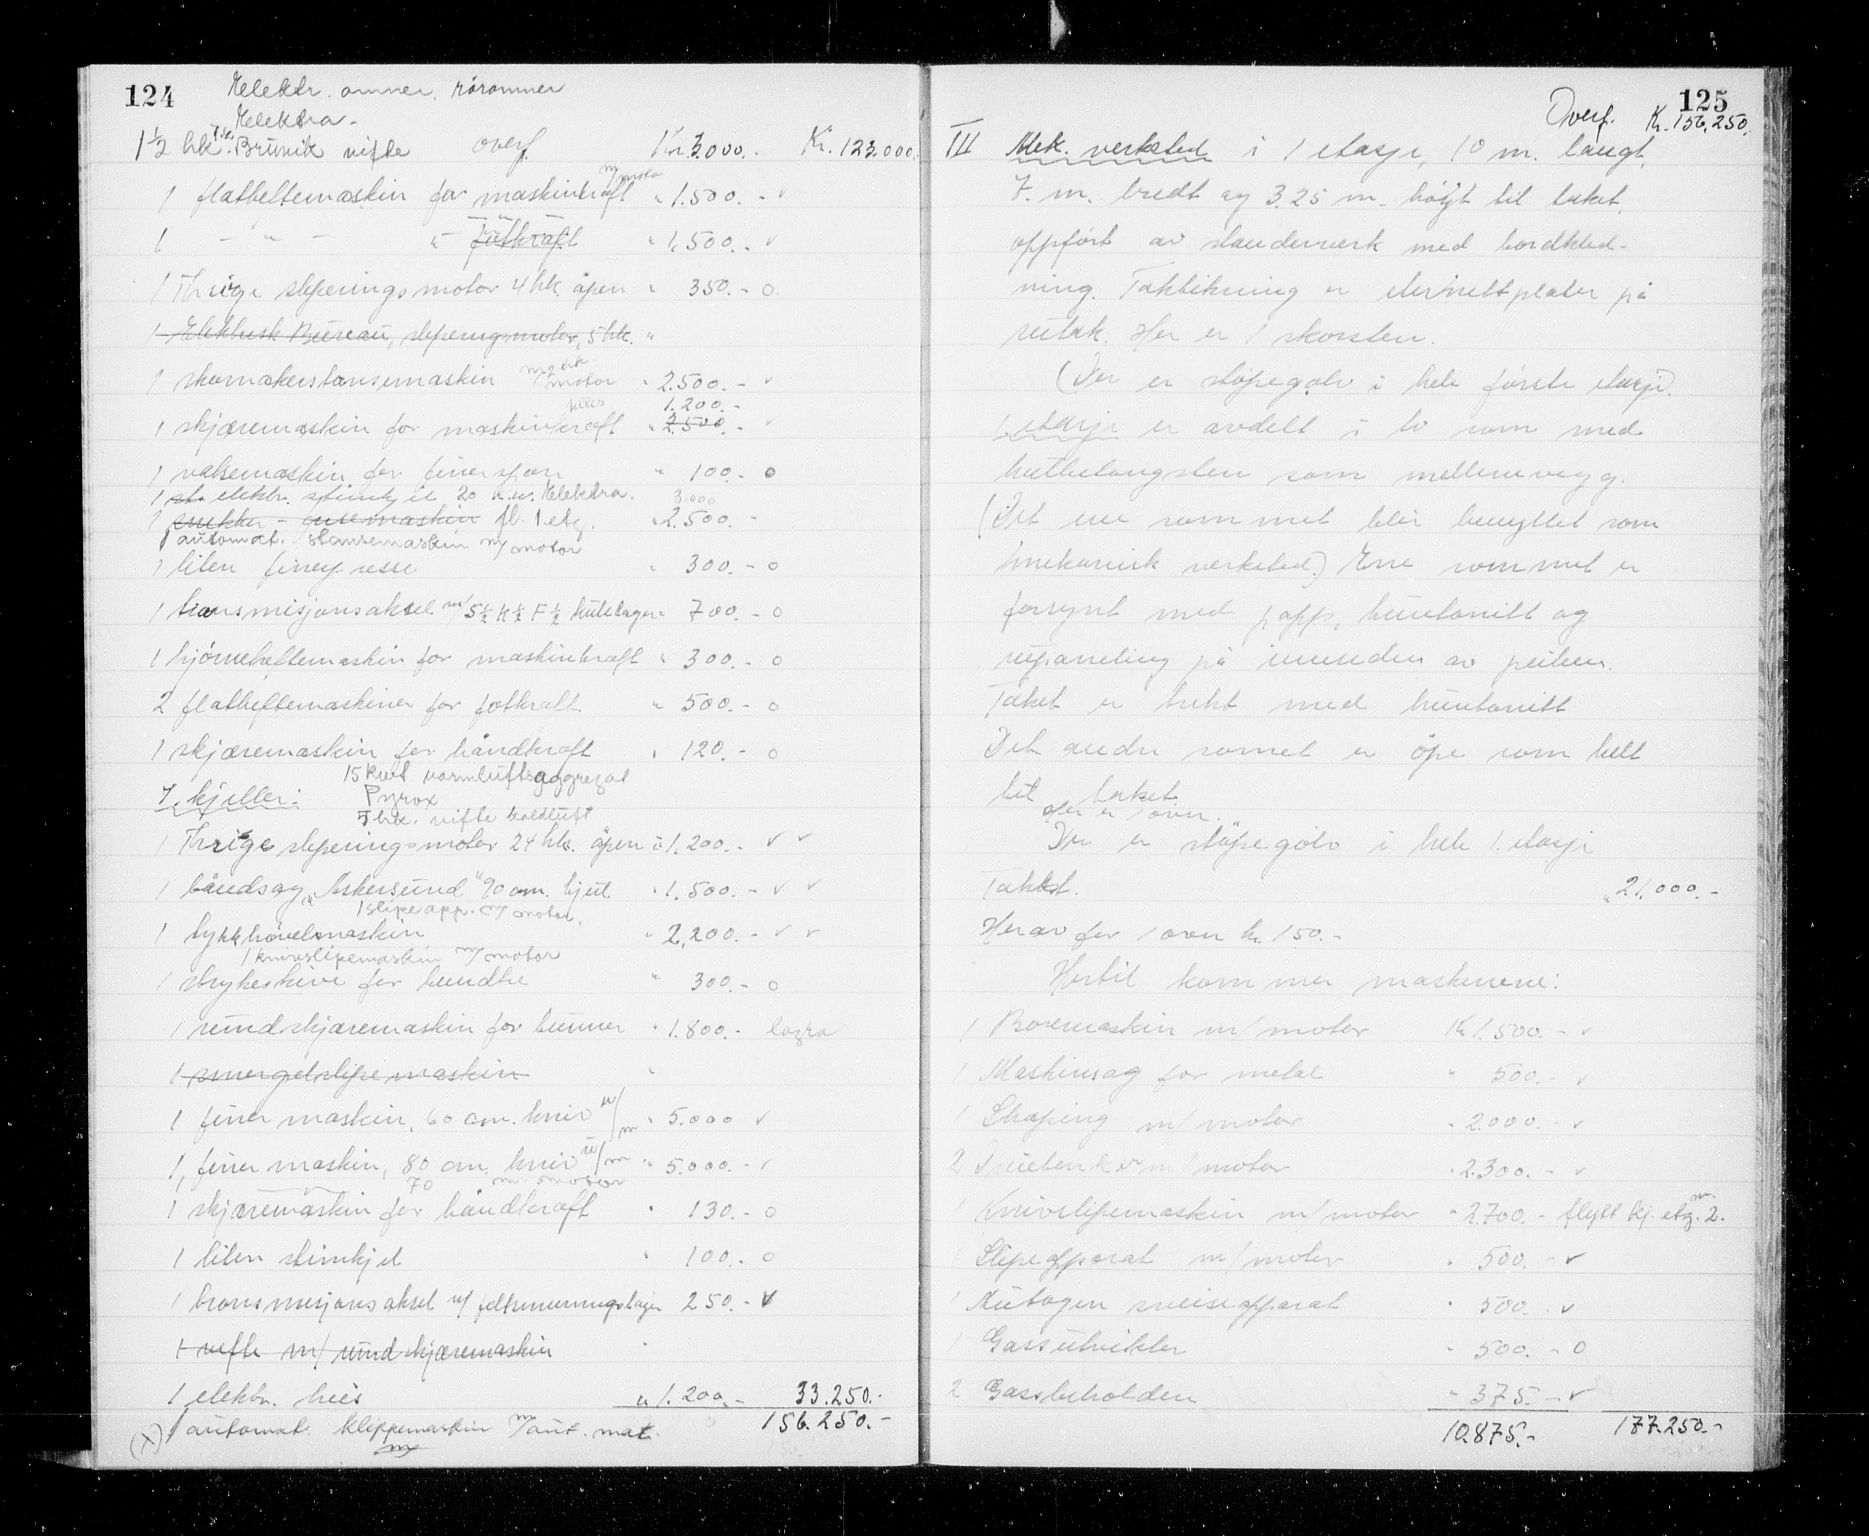 124
Elektr. omner. röromner
Elektra -
1 1/2 hk. Brunvik vifte overf. Kr. 3.000.- Kr. 123.000.
1 flatheftemaskin for maskinkraft m/motor " 1.500.- v
1 - " - " - fotkraft " 1.500.- v
1 Thrige sleperingsmotor 4 hk. åpen " 350.- o
1 Elektrisk Bureau, sleperingsmotor, 5 hk. "
1 skomakerstansemaskin m/2 hk. motor " 2.500.- v
felles 1.200.-
1 skjæremaskin for maskinkraft " 2.500.- v
1 valsemaskin for finerspon " 100.- o
1 elektr. stimkjel 20 k.w. Elektra. 3.000
1 fl. 1 etg. " 2.500.-
1 automat. stansemaskin m/motor
1 liten finerpresse " 300.- o
1 transmisjonsaksel m/ 5 1/2 kulelager " 700.- o
1 hjörneheftemaskin for maskinkraft " 300.- o
2 flatheftemaskiner for fotkraft. " 500.- o
1 skjæremaskin for håndkraft " 120.- o
15 kwt varmluftsaggregat
I kjeller: Pyrox
hk. vifte kaldluft
1 Thrige sleperingsmotor 24 hk. åpen " 1.200.- v v
1 båndsag „Askersund" 90 cm. hjul " 1.500.- v v
1 slipeapp. m/ motor.
1 tykkhövelmaskin " 2.200.- v v
1 knivslipemaskin m/ motor
1 strykeskive for " 300.- o
1 rundskjæremaskin for bunner " 1.800.- lagra
1 smergelslipemaskin "
1 finermaskin, 60 cm. kniv m/m " 5.000 v
1, finermaskin, 80 cm. kniv m/m " 5.000.- v
70 m. motor
1 skjæremaskin for håndkraft " 130.- o
1 liten stimkjel " 100.- o
1 transmisjonsaksel m/ 250.- v
1 vifte m/ rundskjæremaskin "
1 elektr. heis " 1.200.- 33.250.-
(X) 1 automat. klippemaskin m/aut. mat. 156.250.-
125
Overf. Kr. 156.250.
III Mek. verksted i 1 etasje, 10 m. langt,
7. m. bredt og 3.25 m. höyt til taket,
oppfört av stenderverk med bordkled-
ning. Taktekning er eternittplater på
rutak. Her er 1 skorsten.
(Der er stöpegolv i hele förste etasje.
1. etasje er avdelt i to rom med
som mellemvegg.
(Det ene rommet blir benyttet som
mekanisk verksted.) Ene rommet er
forsynt med papp, huntonitt og
rupaneling på innsiden av
Taket er trekt med huntonitt
Det andre romet er åpe som helt
til taket.
Her er 1 ovn.
Der er stöpegolv i hele 1. etasje
Takst. " 21.000.-
Herav for 1 ovn kr. 150.-
Hertil kommer maskinene:
1 Boremaskin m/ motor Kr. 1.500.- v
1 Maskinsag for metal " 500.- v
1 Shaping m/ motor " 2.000.- v
2 Dreiebenker m/ motor " 2.300.- v
1 Knivslipemaskin m/ motor " 2.700.- flytt kj. etg. m. 2.
1 Slipeapparat m/ motor " 500.- v
1 Autogen sveiseapparat " 500.- v
1 Gassutvikler " 500.- o
2 Gassbeholdere " 375.- v
10.875.- 177.250.-